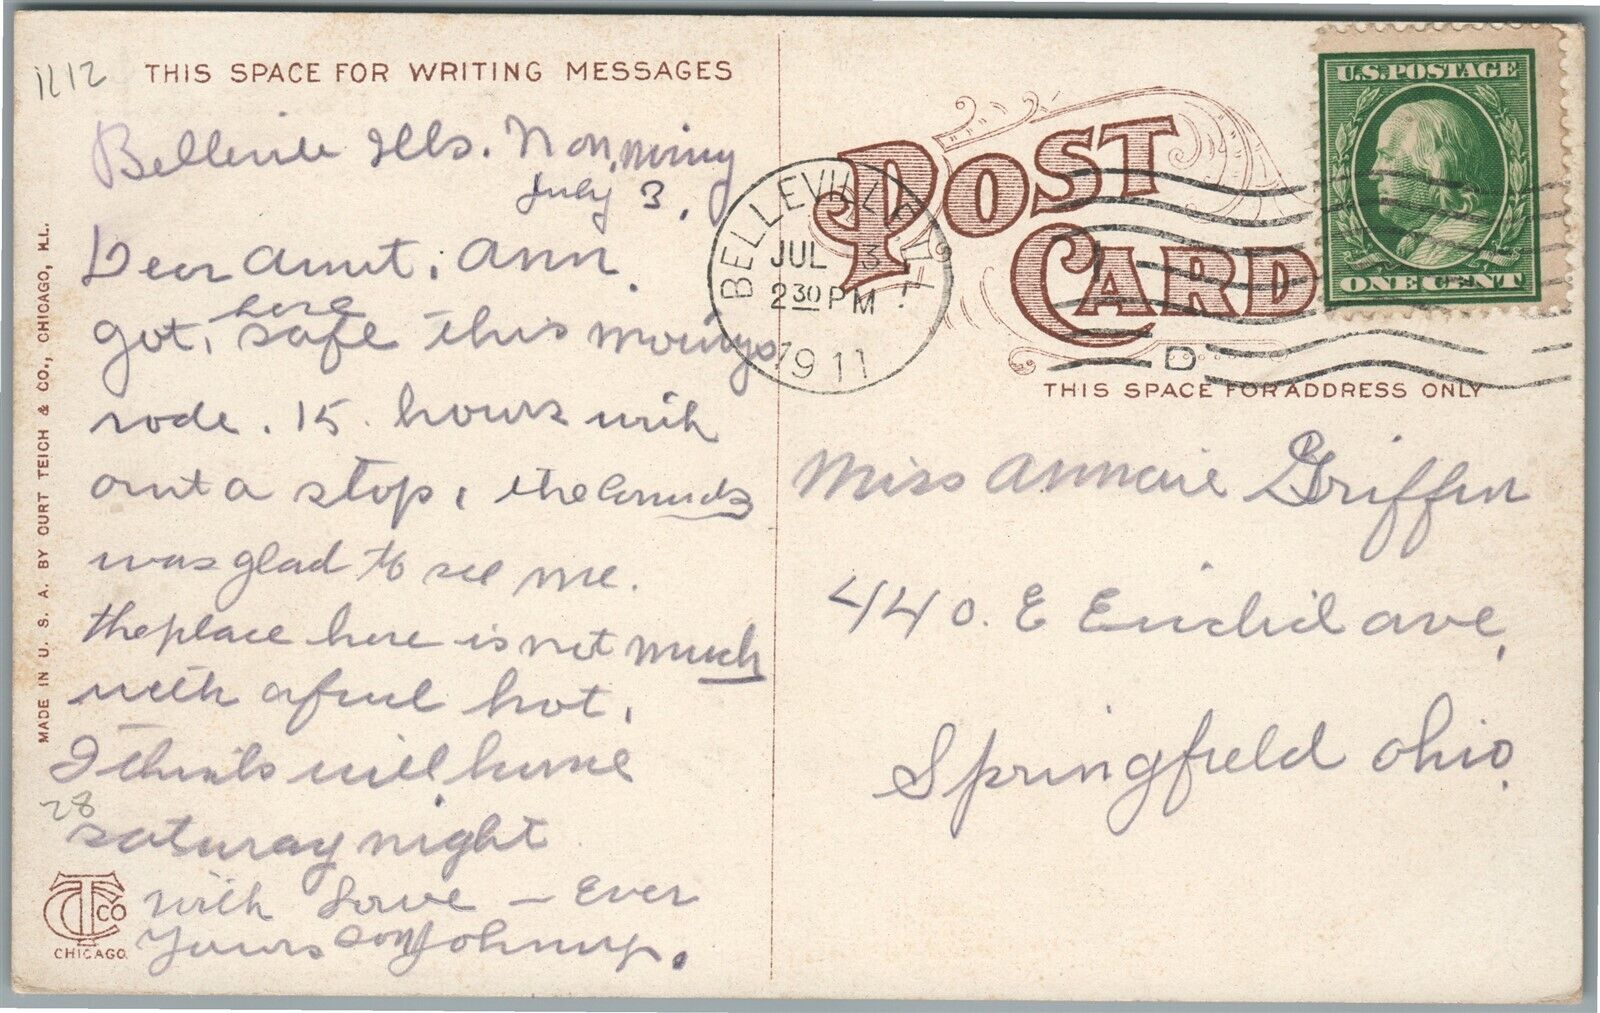 1112
THIS SPACE FOR WRITING MESSAGES
Belleville Ills. Mon, morning
July 3.
Dear Aunt. Ann.
got, here safe this morings
rode. 15. hours with
out a stop, the
was glad to see me.
the place here is not much
with afuel hot.
I thinks will home
saturay night
with Love - Ever
Yours Johnny.
28
TCT CO
CHICAGO
MADE IN U. S. A. BY CURT TEICH & CO., CHICAGO, ILL.
POST
CARD
U.S. POSTAGE
ONE CENT
BELLEVILLE ILL.
JUL 3
2 30 PM
1911
D
THIS SPACE FOR ADDRESS ONLY
Miss Griffin
440. E Euclid ave,
Springfield Ohio.